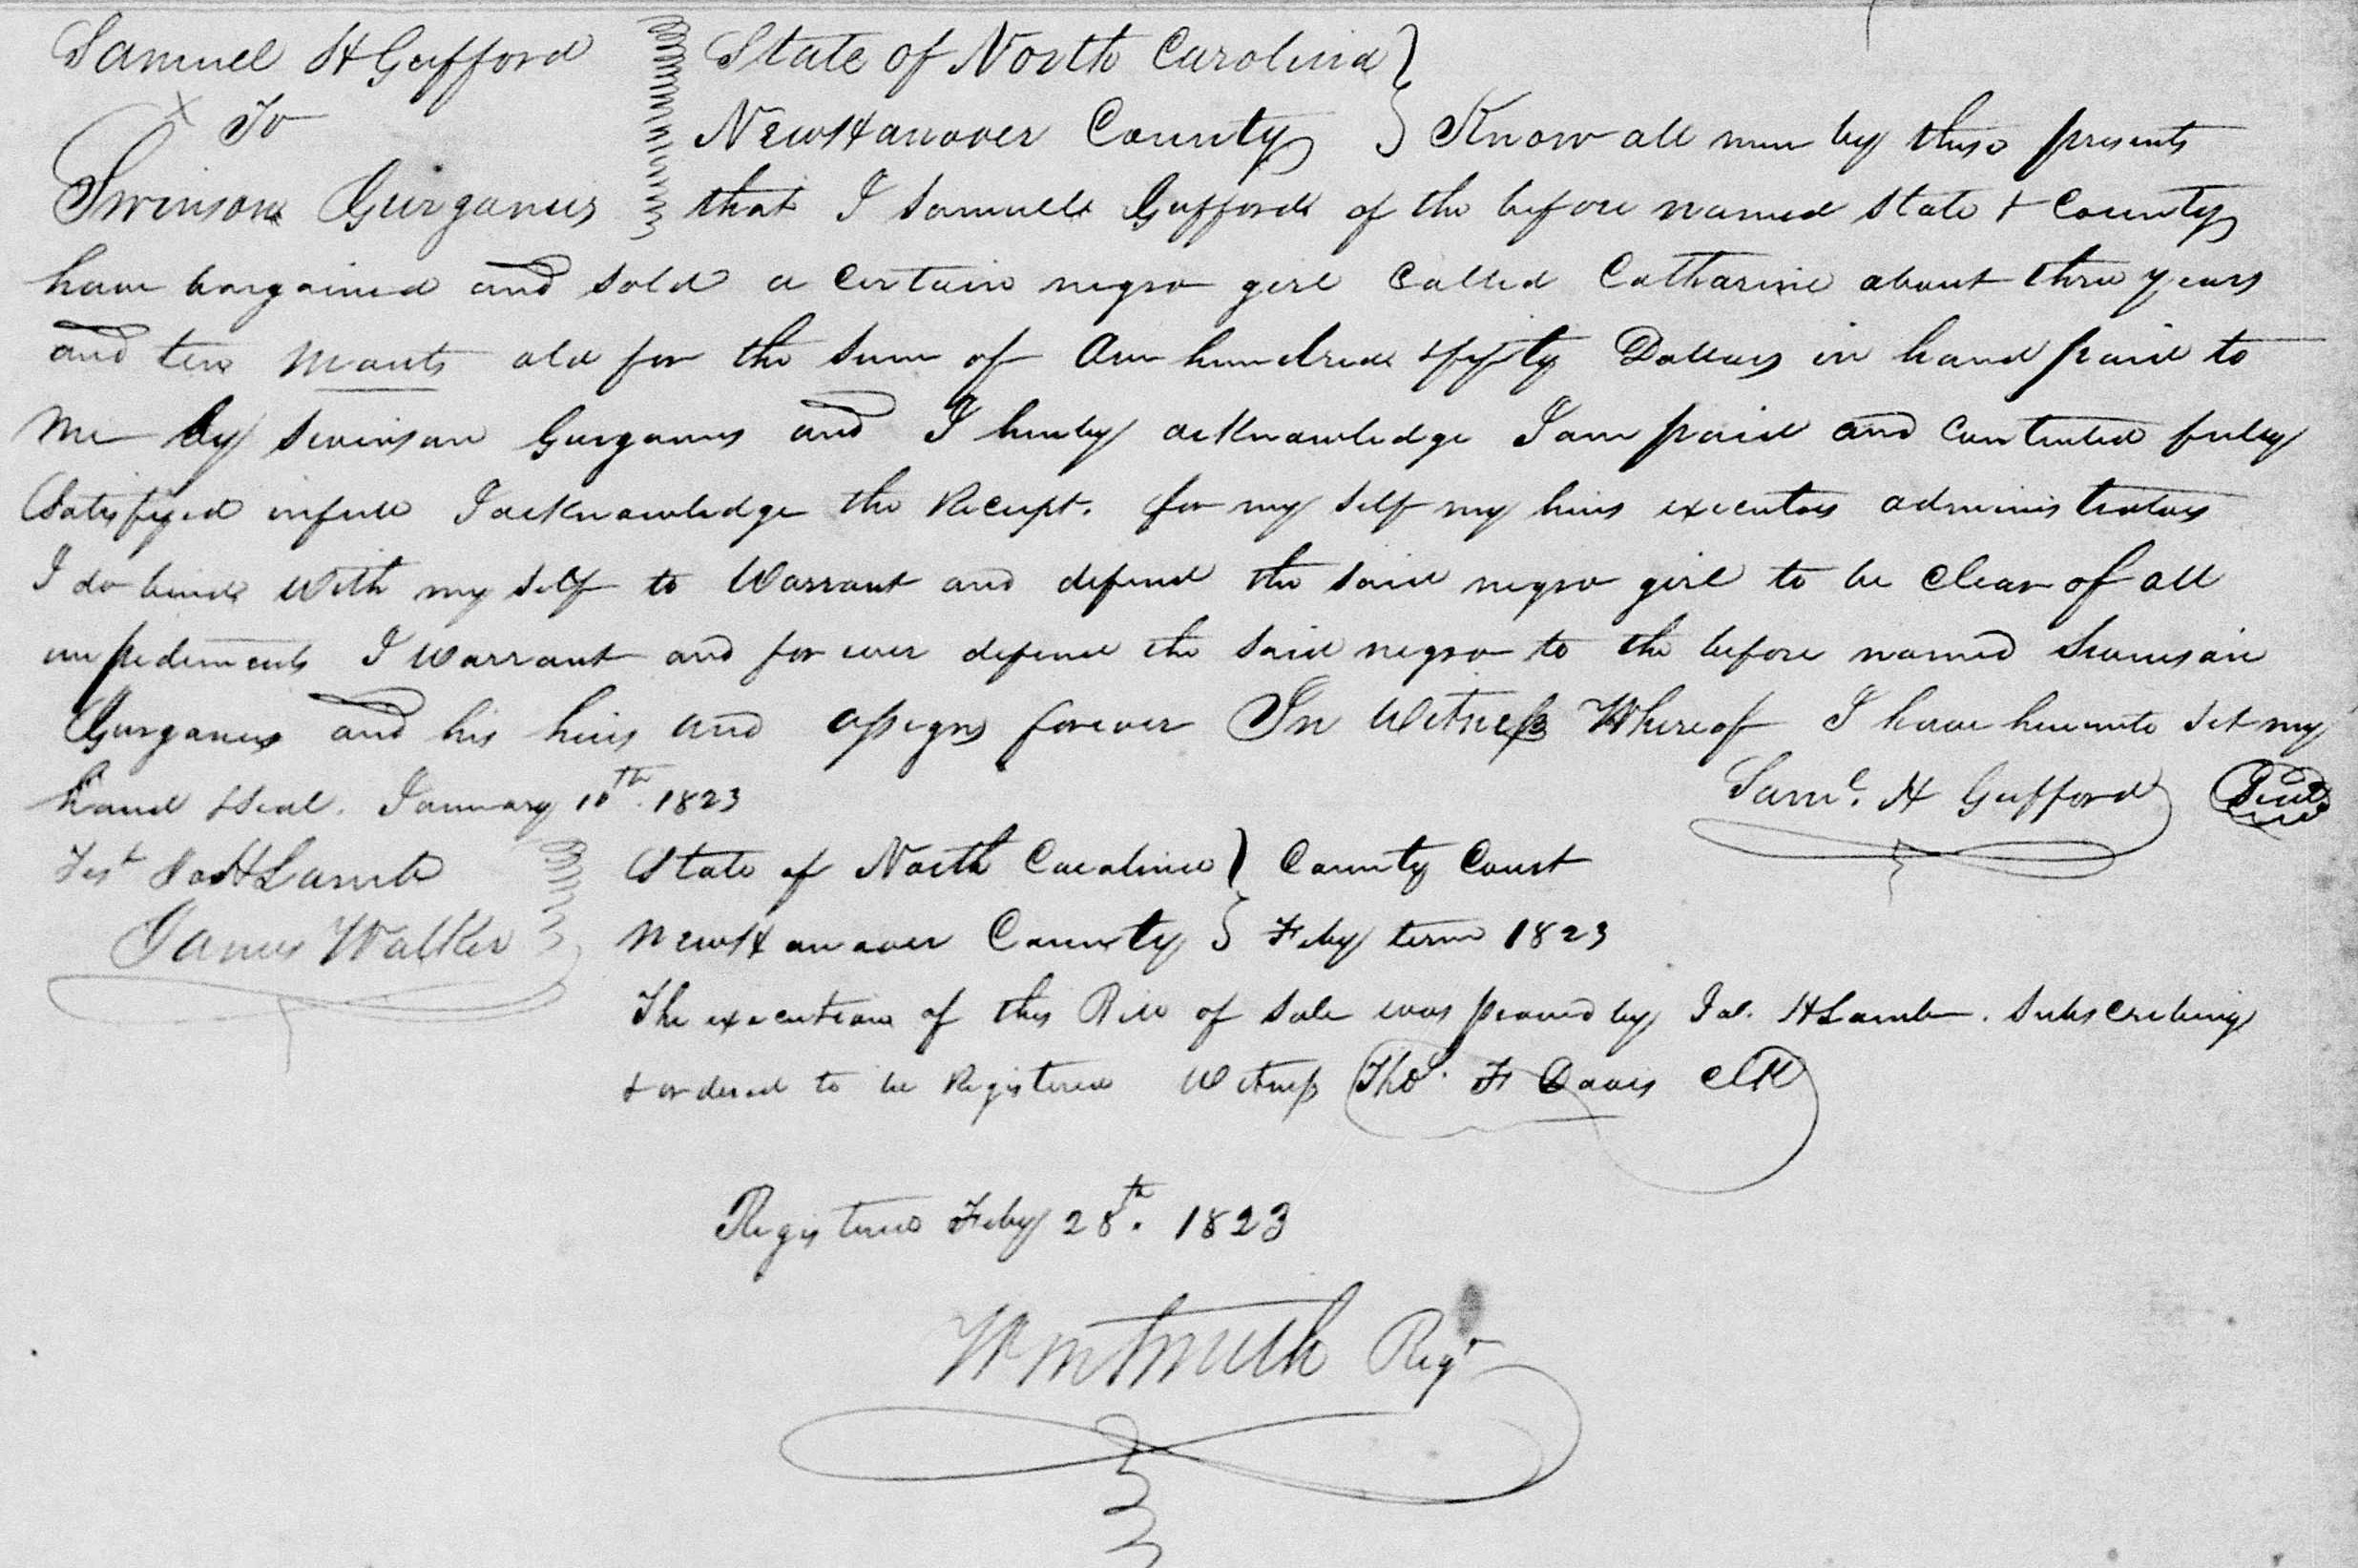 Samuel H Gufford
To
Swinson Gurganus
State of North Carolina
New Hanover County } Know all men by these presents
that I Samuel Gufford of the before named state & County
have bargained and sold a certain negro girl called Catharine about three years
and ten Monts old for the sum of One hundred & fifty Dollars in hand paid to
me by Swinson Gurganus and I hereby acknowledge I am paid and contented fully
Satisfyed in full I acknowledge the Receipt. for my self my heirs executors administrators
I do bind with my self to Warrant and defend the said negro girl to be Clear of all
impediments I Warrant and for ever defend the said negro to the before named Swinson
Gurganus and his heirs and assigns forever In Witness Whereof I have hereunto set my
hand & seal. January 10th. 1823
Saml. H Gufford Seal
Test Jas H Lamb
James Walker
State of North Carolina } County Court
New Hanover County } Feby term 1823
The execution of this Bill of Sale was proved by Jas. H Lamb. Subscribing
& ordered to be Registered Witness Thos. F Davis Clk
Registered Feby 28th. 1823
Wm Smith Regr